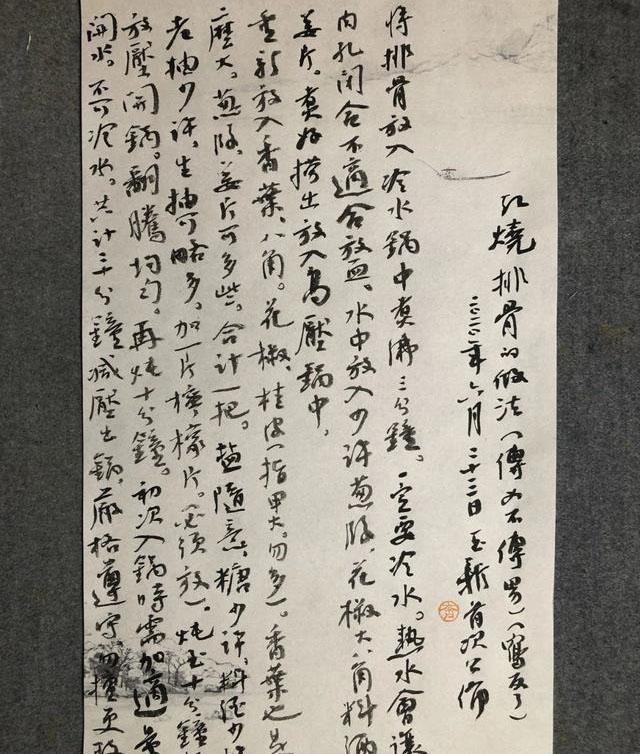 红燒排骨的做法(傳女不傳男)(寫反了)
二〇二二年六月二十三日玉新首次公佈
将排骨放入冷水鍋中煮沸三分鐘。一定要冷水。熱水會讓
肉孔閉合不適合放血。水中放入少许葱段、花椒大八角料酒
姜片。煮好捞出放入高壓鍋中,
重新放入香葉、八角。花椒、桂皮(指甲大。勿多)。香葉也是
麼大。葱段、姜片可多些。合计一把。盐隨意、糖少许、料酒少许
老抽少许。生抽可略多。加一片檸檬片。(必须放)炖至十分鐘
放壓開鍋。翻騰均匀。再炖十分鐘。初次入鍋時需加適量
開水。不可冷水。共计三十分鐘、减壓出鍋。嚴格遵守、勿擅更改